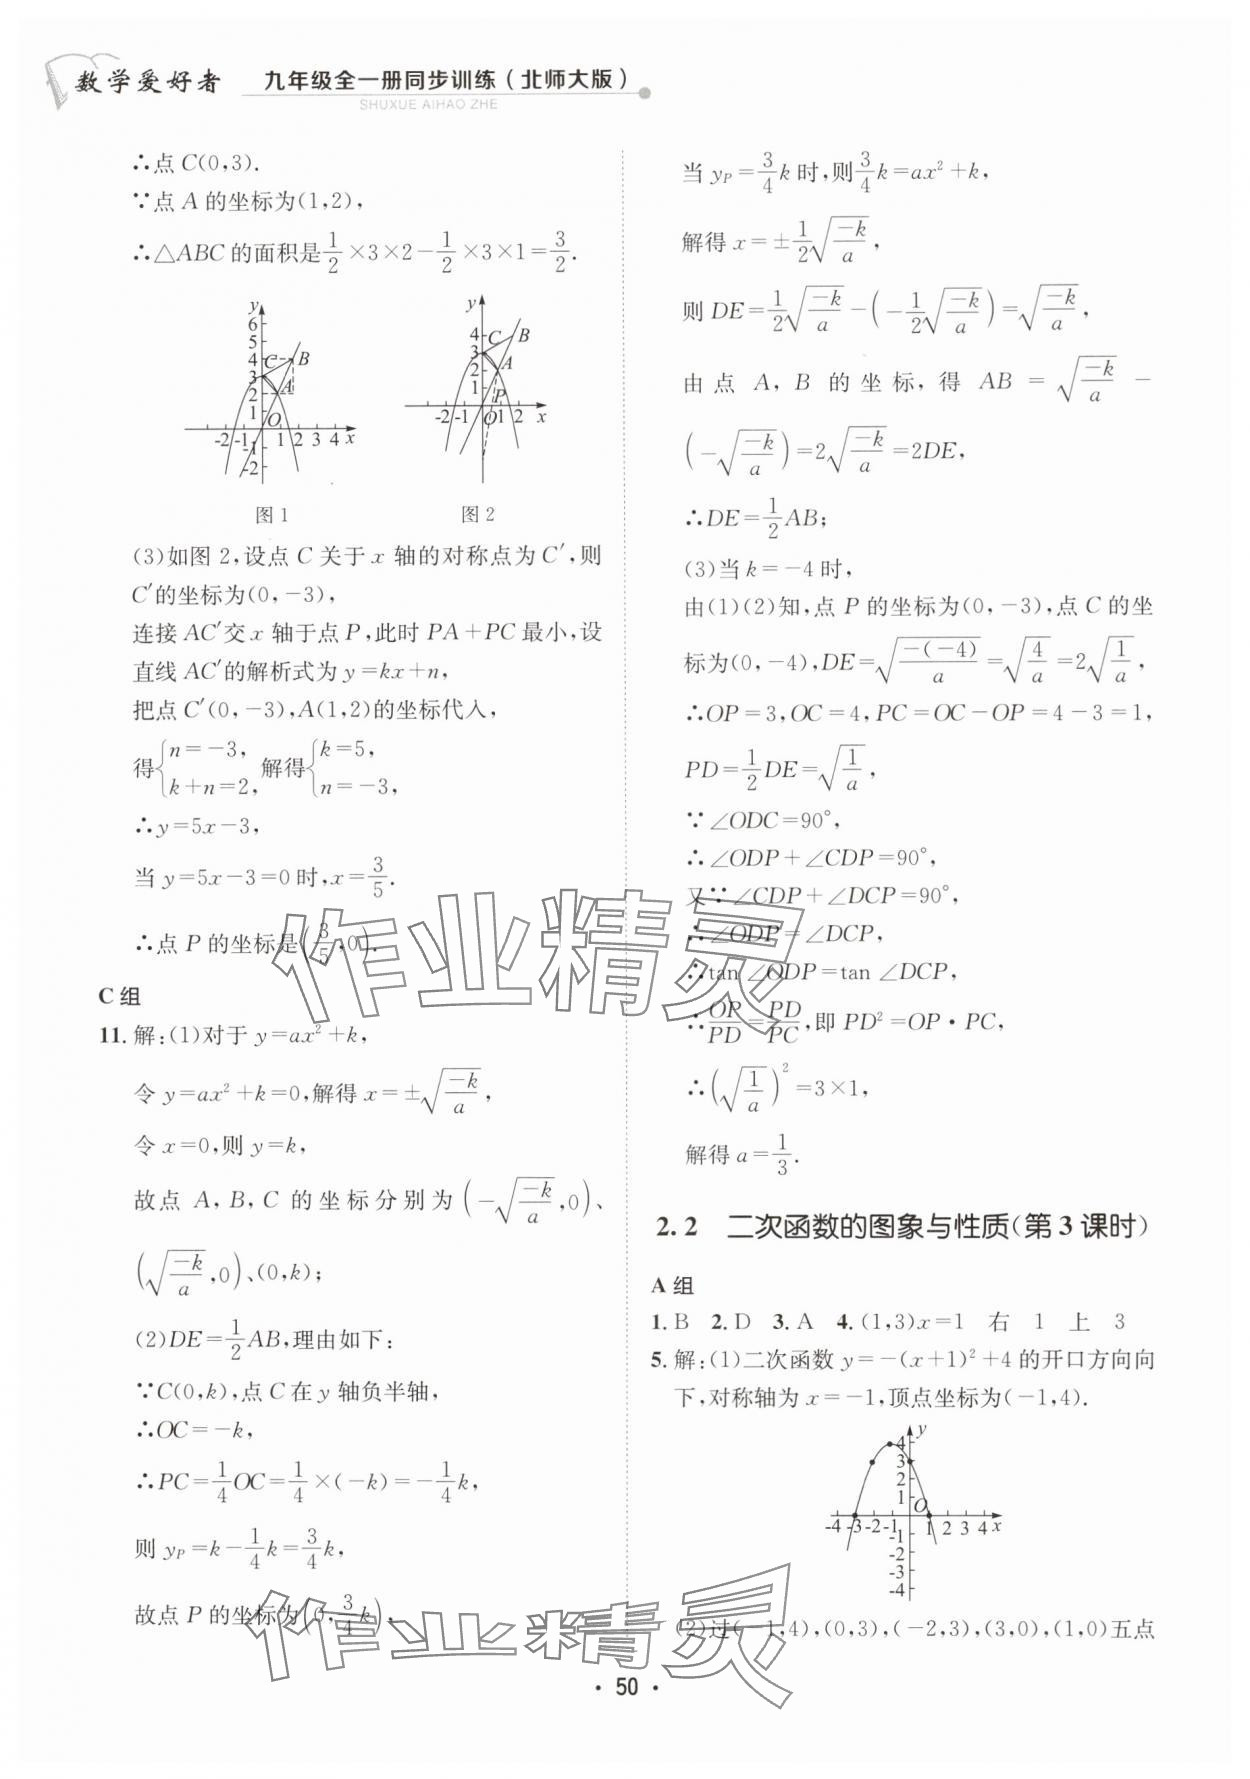 数学爱好者 九年级全一册同步训练(北师大版)
SHUXUE AIHAO ZHE
∴点 C(0,3).
∵点 A 的坐标为(1,2),
∴△ABC 的面积是1/2×3×2-1/2×3×1=3/2.
y 6 5 4 3 2 1 C B A O -2 -1 1 2 3 4 x -1 -2
图 1
y 4 3 2 1 C B A P -2 -1 O 1 2 x
图 2
(3)如图 2,设点 C 关于 x 轴的对称点为 C′,则
C′的坐标为(0,-3),
连接 AC′交 x 轴于点 P,此时 PA+PC 最小,设
直线 AC′的解析式为 y=kx+n,
把点 C′(0,-3),A(1,2)的坐标代入,
得{n=-3, k+n=2, 解得{k=5, n=-3,
∴y=5x-3,
当 y=5x-3=0 时,x=3/5.
∴点 P 的坐标是(3/5,0).
C 组
11. 解:(1)对于 y=ax²+k,
令 y=ax²+k=0,解得 x=±√(-k/a),
令 x=0,则 y=k,
故点 A,B,C 的坐标分别为(-√(-k/a),0)、
(√(-k/a),0)、(0,k);
(2)DE=1/2AB,理由如下:
∵C(0,k),点 C 在 y 轴负半轴,
∴OC=-k,
∴PC=1/4OC=1/4×(-k)=-1/4k,
则 yP=k-1/4k=3/4k,
故点 P 的坐标为(0,3/4k),
当 yP=3/4k 时,则3/4k=ax²+k,
解得 x=±1/2√(-k/a),
则 DE=1/2√(-k/a)-(-1/2√(-k/a))=√(-k/a),
由点 A,B 的坐标,得 AB=√(-k/a)-
(-√(-k/a))=2√(-k/a)=2DE,
∴DE=1/2AB;
(3)当 k=-4 时,
由(1)(2)知,点 P 的坐标为(0,-3),点 C 的坐
标为(0,-4),DE=√(-(-4)/a)=√(4/a)=2√(1/a),
∴OP=3,OC=4,PC=OC-OP=4-3=1,
PD=1/2DE=√(1/a),
∵∠ODC=90°,
∴∠ODP+∠CDP=90°,
又∵∠CDP+∠DCP=90°,
∴∠ODP=∠DCP,
∴tan∠ODP=tan∠DCP,
∴OP/PD=PD/PC,即 PD²=OP·PC,
∴(√(1/a))²=3×1,
解得 a=1/3.
2.2 二次函数的图象与性质(第 3 课时)
A 组
1. B 2. D 3. A 4. (1,3) x=1 右 1 上 3
5. 解:(1)二次函数 y=-(x+1)²+4 的开口方向向
下,对称轴为 x=-1,顶点坐标为(-1,4).
y 4 3 2 1 O -4 -3 -2 -1 1 2 3 4 x -1 -2 -3 -4
(2)过(-1,4),(0,3),(-2,3),(3,0),(1,0)五点
作业精灵
作业精灵
· 50 ·